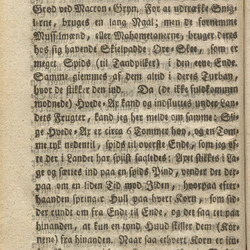 Grød ved Macron-Gryn. For at udtrække Snig-
lerne, bruges en lang Naal; men de fornemme
Muss-lmænd, eller Mahometanerne, bruge deres
hos sig havende Skielpadde Øre-Skee, som er
meget Spids (til Tandpikker) i den eene Ende.
Samme giemmes af dem altid i deres Turban,
hvor de stikker den ind. Da (de ikke fuldkommen
modnede) Hvede-Ax kand og indsluttes under Lan-
ders Frugter, kand jeg her melde om samme: Slig
ge Hvede-Ax er circa 6 Tommer høy, og en Tom-
me tyk nedentil, spids til øverste Ende, som jeg of-
te der i Landet har spiist saaledes: Axet stikkes i Læ-
ge og sættes ind paa en spids Pind, vendet det der-
paa om en liden Tid mod Ilden, hvorpaa efter-
haanden springer Hull paa hvert Korn, som sid-
der rundt om fra Ende til Ende, og det saa tæt paa
hinanden, at kun en Huud skiller dem (Kor-
nene) fra hinanden. Naar saa ethvert Korn er saa